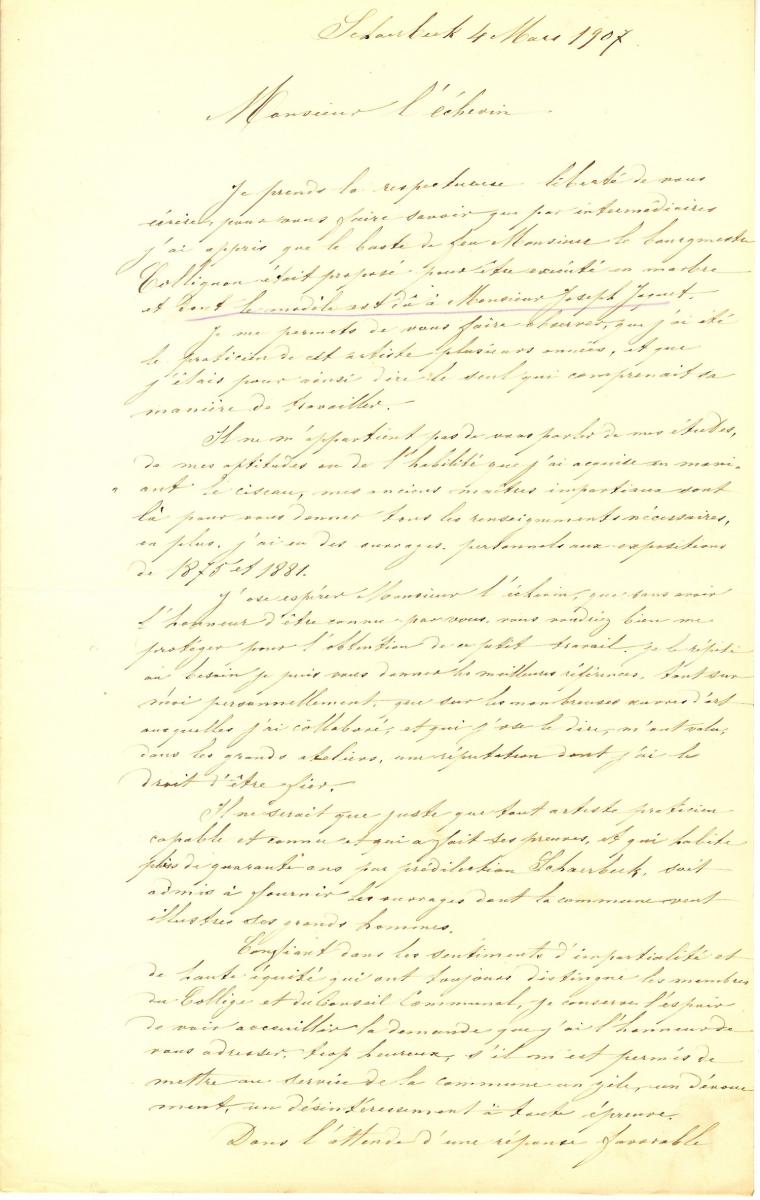 Schaerbeek 4 Mars 1907.
Monsieur l'échevin
Je prends la respectueuse liberté de vous
écrire, pour vous faire savoir que par intermédiaires
j'ai appris que le buste de feu Monsieur le bourgmestre
Collignon était proposé pour être exécuté en marbre
et dont le modèle est dû à Monsieur Joseph Jacquet.
Je me permets de vous faire observer, que j'ai été
le praticien de cet artiste plusieurs années, et que
j'étais pour ainsi dire le seul qui comprenait sa
manière de travailler.
Il ne m'appartient pas de vous parler de mes études,
de mes aptitudes ou de l'habilité que j'ai acquise en mani-
ant le ciseau, mes anciens maîtres impartiaux sont
là pour vous donner tous les renseignements nécessaires,
en plus, j'ai eu des ouvrages personnels aux expositions
de 1875 et 1881.
J'ose espérer Monsieur l'échevin, que sans avoir
l'honneur d'être connu par vous, vous voudrez bien me
protéger pour l'obtention de ce petit travail. je le répète
au besoin je puis vous donner les meilleures références, tant sur
moi personnellement, que sur les nombreuses œuvres d'art
auxquelles j'ai collaboré, et qui j'ose le dire, m'ont valu,
dans les grands ateliers, une réputation dont j'ai le
droit d'être fier.
Il ne serait que juste que tout artiste praticien
capable et connu et qui a fait ses preuves, et qui habite
plus de quarante ans par prédilection Schaerbeek, soit
admis à fournir les ouvrages dont la commune veut
illustrer ses grands hommes.
Confiant dans les sentiments d'impartialité et
de haute équité qui ont toujours distingué les membres
du Collège et du Conseil Communal, je conserve l'espoir
de voir accueillir la demande que j'ai l'honneur de
vous adresser, trop heureux, s'il m'est permis de
mettre au service de la commune un zèle, un dévoue
ment, un désintéressement à toute épreuve.
Dans l'attende d'une réponse favorable